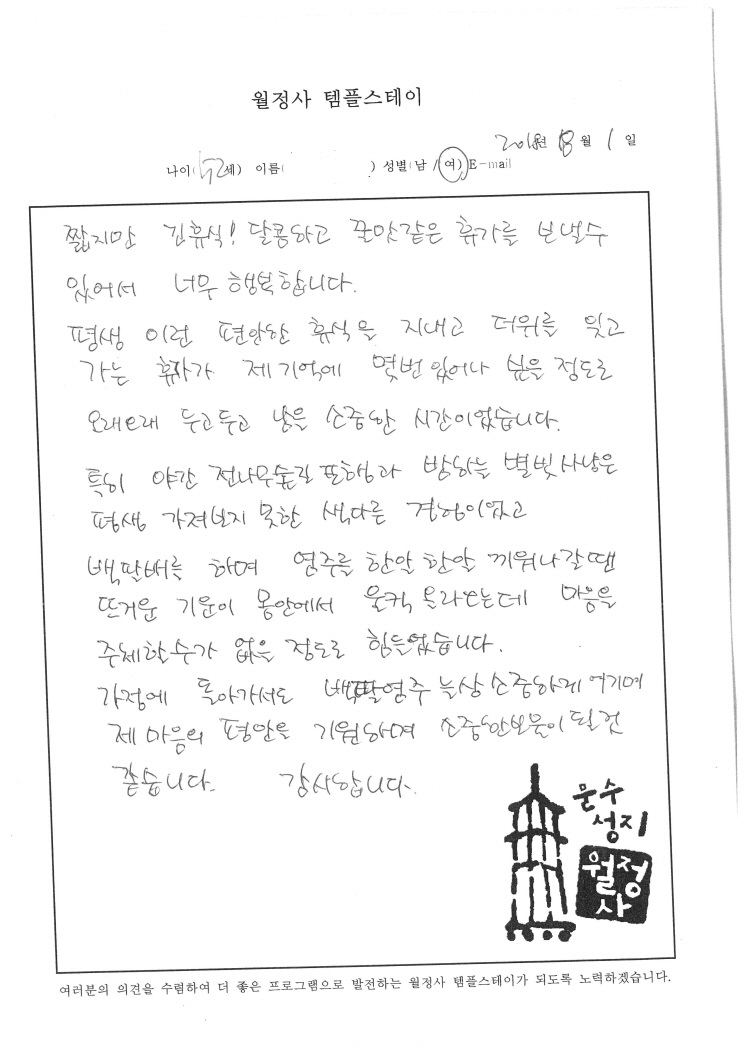 월정사 템플스테이
2018년 8월 1일
나이(52세) 이름( ) 성별(남/여) E-mail
짧지만 긴휴식! 달콤하고 꿀맛같은 휴가를 보낼수
있어서 너무 행복합니다.
평생 이런 편안한 휴식을 지내고 더위를 잊고
가는 휴가가 제 기억에 몇번 있어나 싶을 정도로
오래오래 두고두고 남을 소중한 시간이었습니다.
특히 야간 전나무숲길 포행과 밤하늘 별빛사냥은
평생 가져보지 못한 색다른 경험이었고
백팔배를 하며 염주를 한알 한알 끼워나갈땐
뜨거운 기운이 몸안에서 울컥 올라오는데 마음을
주체할수가 없을 정도로 힘들었습니다.
가정에 돌아가서도 백팔염주 늘상 소중하게 여기며
제 마음의 평안을 기원하며 소중한보물이 될것
같습니다. 감사합니다.
문수
성지
월정
사
여러분의 의견을 수렴하여 더 좋은 프로그램으로 발전하는 월정사 템플스테이가 되도록 노력하겠습니다.